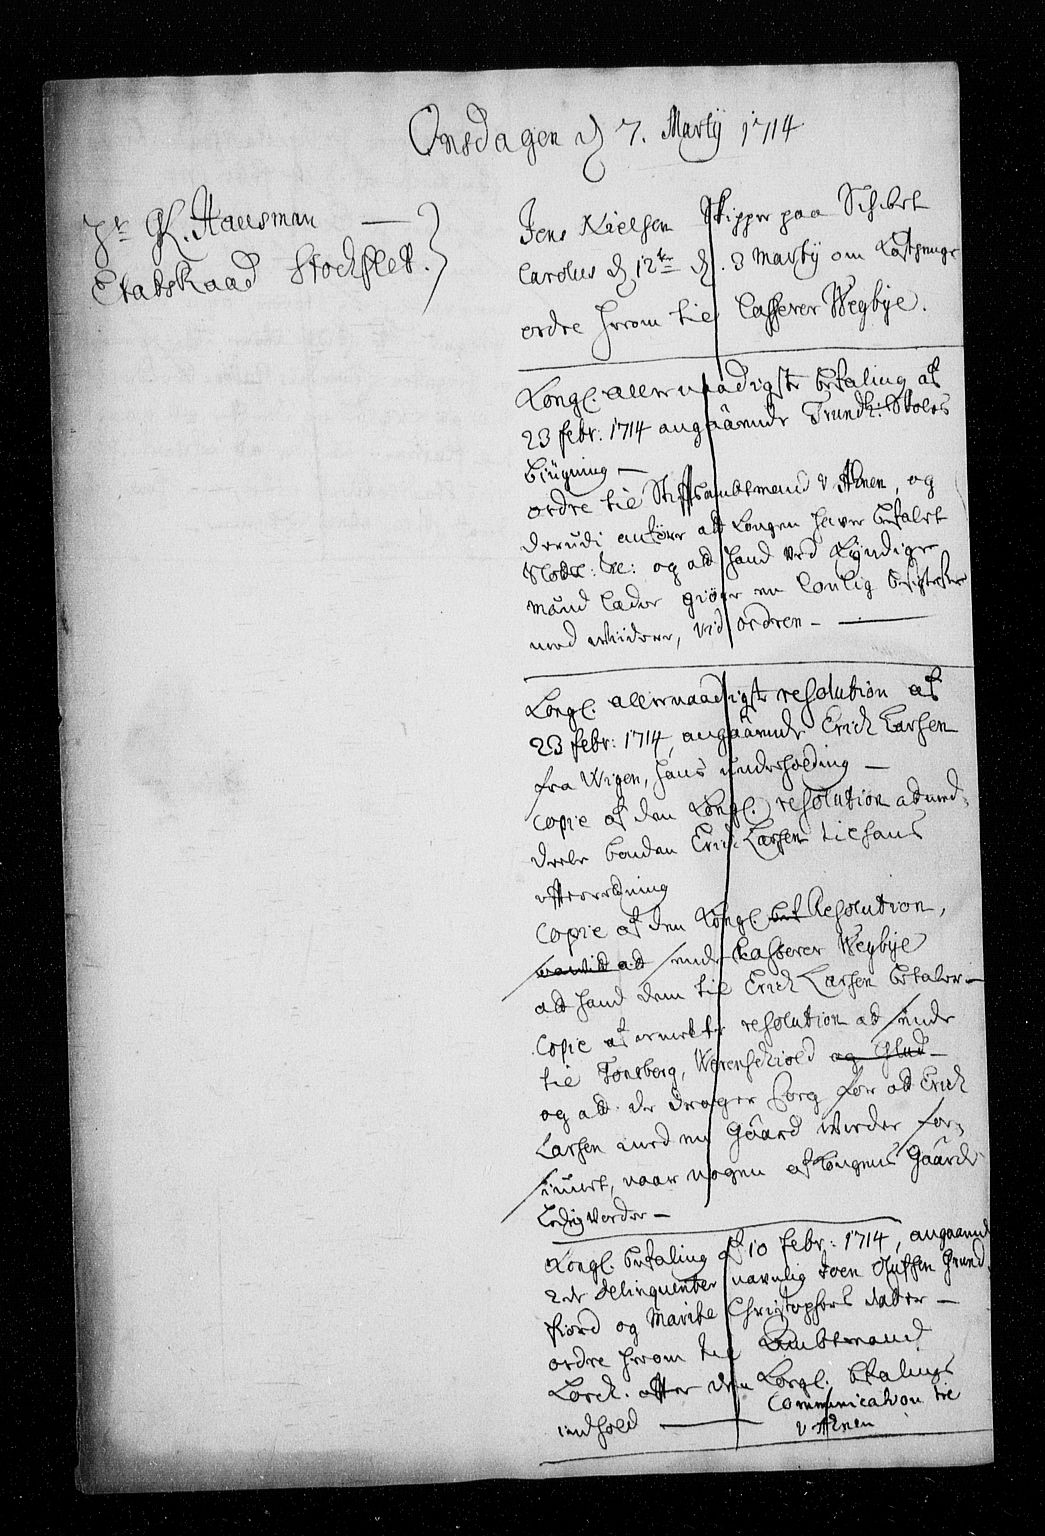 Onsdagen d 7. Martÿ 1714
Hr GL. Hausman —
Etatskaad Stockflet.
Jens Nielsen Skipper paa Schibet
Carolus d 12te d. 3 Martÿ om
ordre herom til Casserer Wegbÿe.
Kongl. allernaadigste befaling af
23 febr: 1714 angaaende Trundh: Skoles
bÿgning —
ordre til Stiftsambtmand v Ahnen, og
derudi anföre att Kongen haver befalet
og att hand ved Kÿndige
Mænd lader giöre en lovlig besigtelse
med widere, vid ordren —
Kongl. allernaadigste resolution af
23 febr: 1714, angaaende Erich Larsen
fra Wigen, hans underholding —
Copie af den Kongl. resolution at med-
deele bonden Erich Larsen til hans
efterretning
Copie af den Kongl. bef Resolution,
att sende Casserer Wegbÿe
att hand dem til Erich Larsen betaler —
Copie af ermelte resolution at sende
til Tonsberg, Werenschiold og Glud —
og att de drager Sorg for at Erich
Larsen med en Gaard worder for-
siunet, naar nogen af Kongens Gaarde
Ledig worder —
Kongl. befaling af 10 febr: 1714, angaaende
2de Delinqventer navnlig Joen Olufsen Grund
fiord og Marite Christophers dater —
ordre herom til Ambtmand
Lorch. efter den Kongl. befalings
indhold — Communication til
v Ahnen